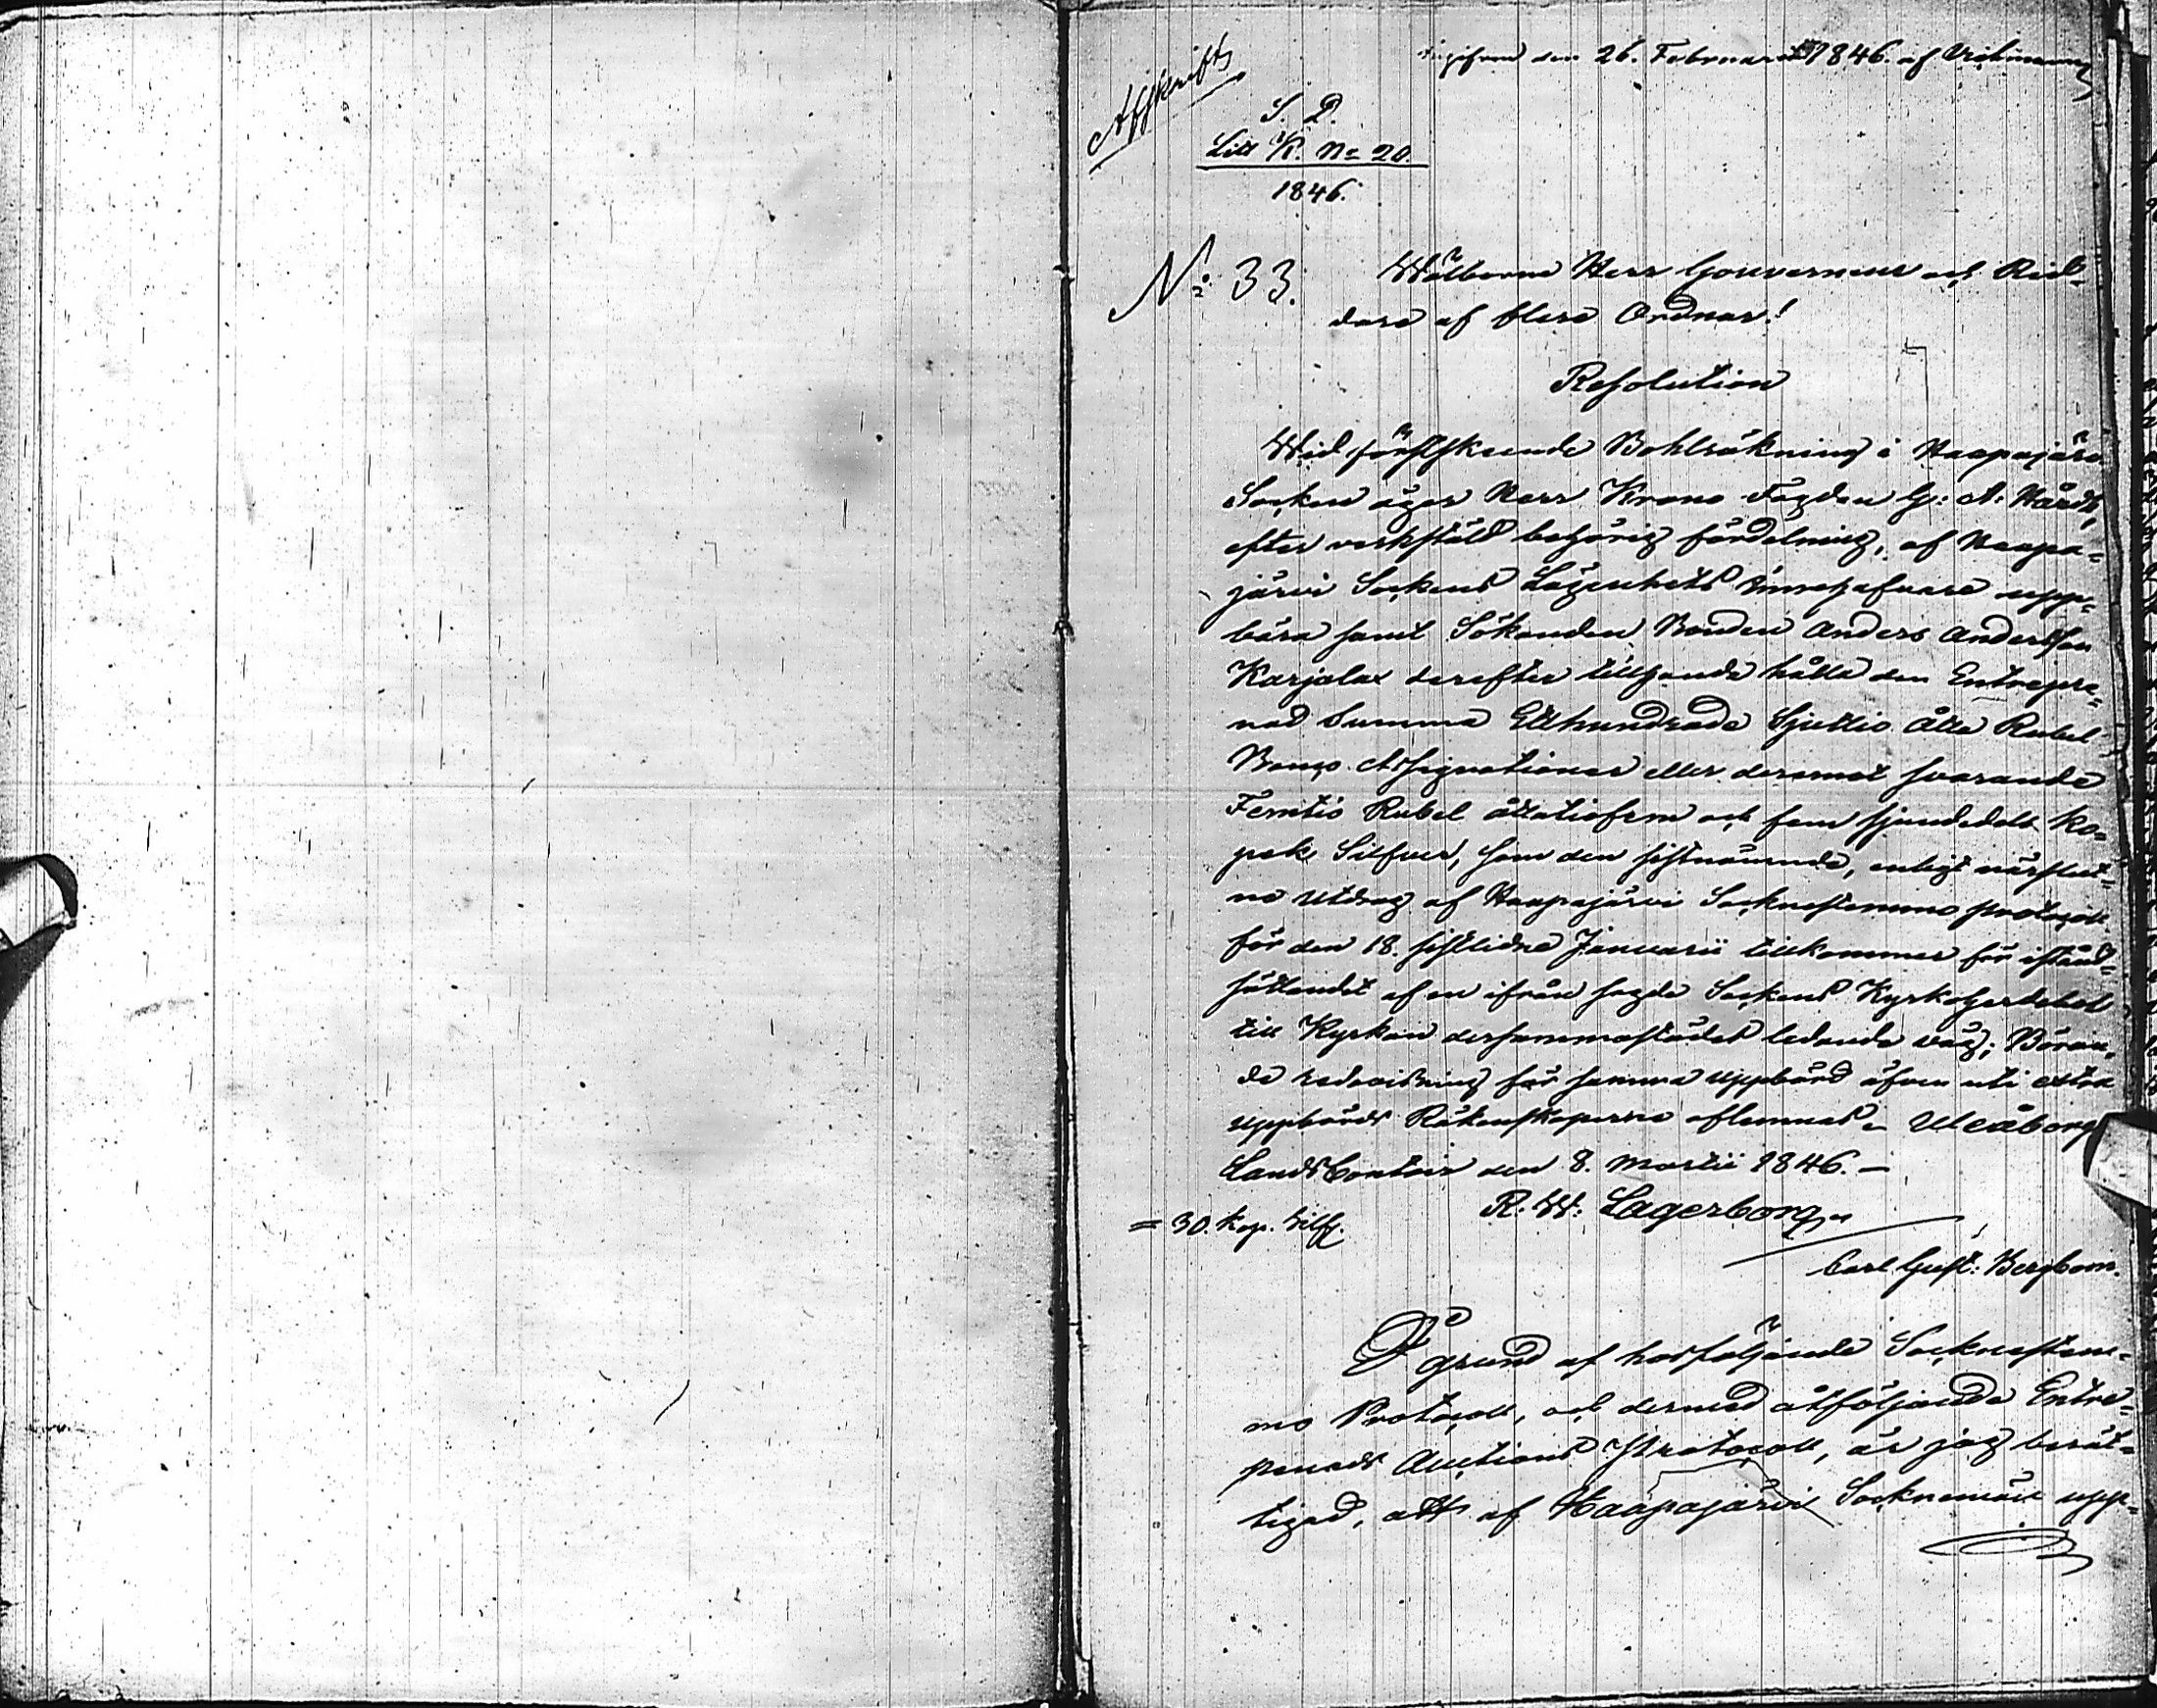 Afskrift
den 26. Februarii 1846. af
S. D.
Litt K. No 20.
1846.
No 33.
Wälborne Herr Gouverneur och Rid-
dare af flere Ordnar!
Resolution
Wid förstskeende Bohlräkning i Haapajärvi
Socken äger Herr Krono Fogden G: A: Hårdh,
efter verkstäld behörig fördelning, af Haapa-
järvi Sockens Lägenhets Innehafvare upp-
bära samt Sökanden Bonden Anders Andersson
Karjalax derefter tillhanda hålla den Entrepre-
nad Summa Etthundrade Sjuttio Åtta Rubel
Banco Assignationer eller deremot svarande
Femtio Rubel åttatiofem och fem sjundedels ko-
pek Silfver, som den sistnämnde, enligt närslut-
na Utdrag af Haapajärvi Sockenstämmo protocoll
för den 18. sistlidne Januarii tillkommer för istånd-
sättandet af en ifrån sagde Sockens Kyrkoherdebol
till Kyrkan dersammastädes ledande väg; Böran-
de redovisning för samma uppbörd äfven uti extra
uppbörds Räkenskaperne aflemnas. Uleåborgs
LandsContoir den 8. Martii 1846. —
R. W: Lagerborg.
= 30. kop. Silf.
Carl Gust: Bergbom.
På grund af hosföljande Sockenstäm-
mo Protocoll, och dermed åtföljande Entre-
penads Auctions Protocoll, är jag berät-
tigad, att af Haapajärvi Sockneman upp-